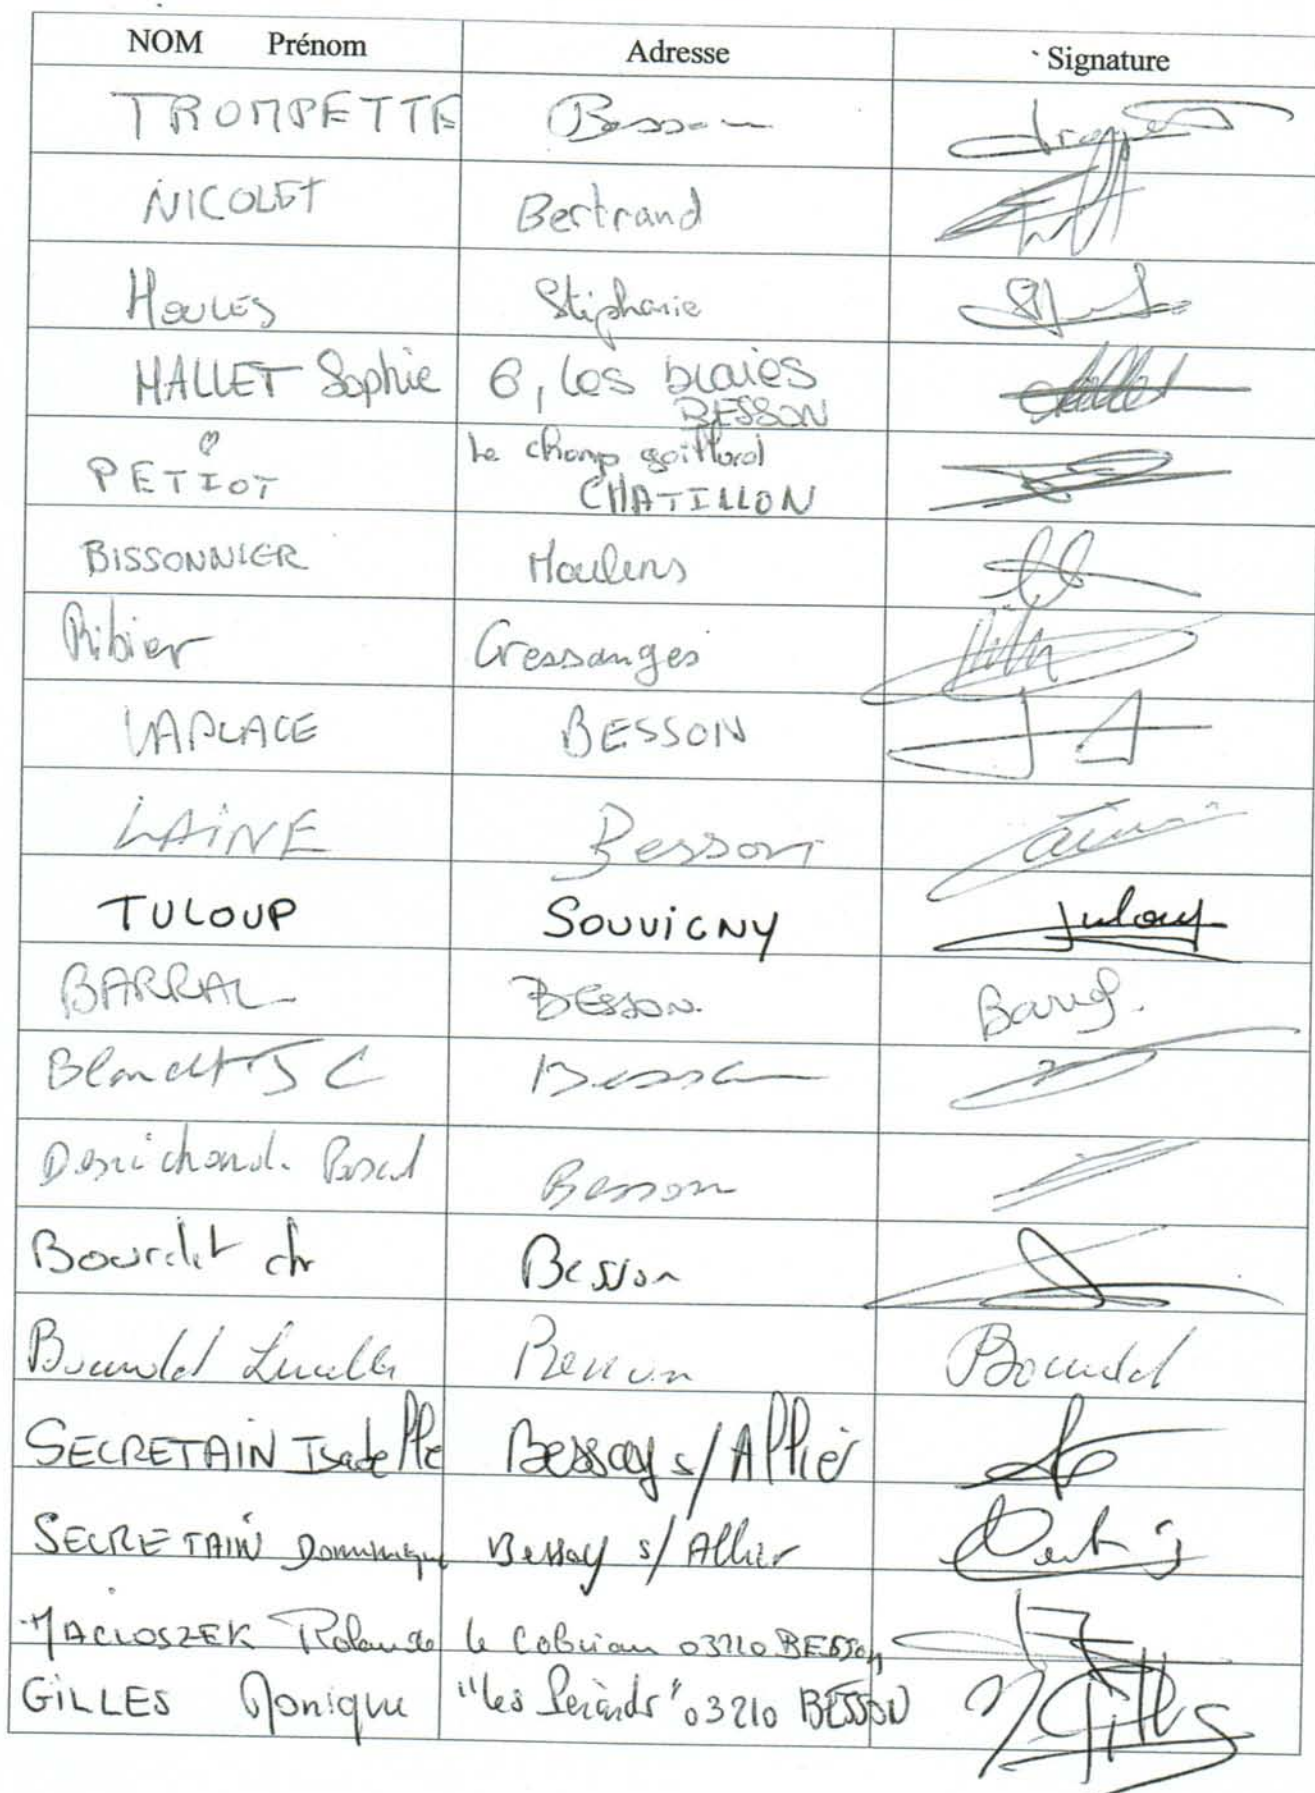 NOM Prénom Adresse Signature
TROMPETTE Besson
NICOLET Bertrand
HOULES Stéphanie
MALLET Sophie 6, les biaies
BESSON
PETIOT Le champ gaillard
CHATILLON
BISSONNIER Moulins
Ribier Cressanges
LAPLACE BESSON
LAINE Besson
TULOUP SOUVIGNY Tuloup
BARRAL BESSON. Barral.
Blanchet J C Besson
Besson
Bourdet ch Besson
Besson
SECRETAIN Isabelle Bessay s/Allier
SECRETAIN Dominique Bessay s/Allier
MACIOSZEK Rolande le 03210 BESSON
GILLES Monique "les 03210 BESSON Gilles